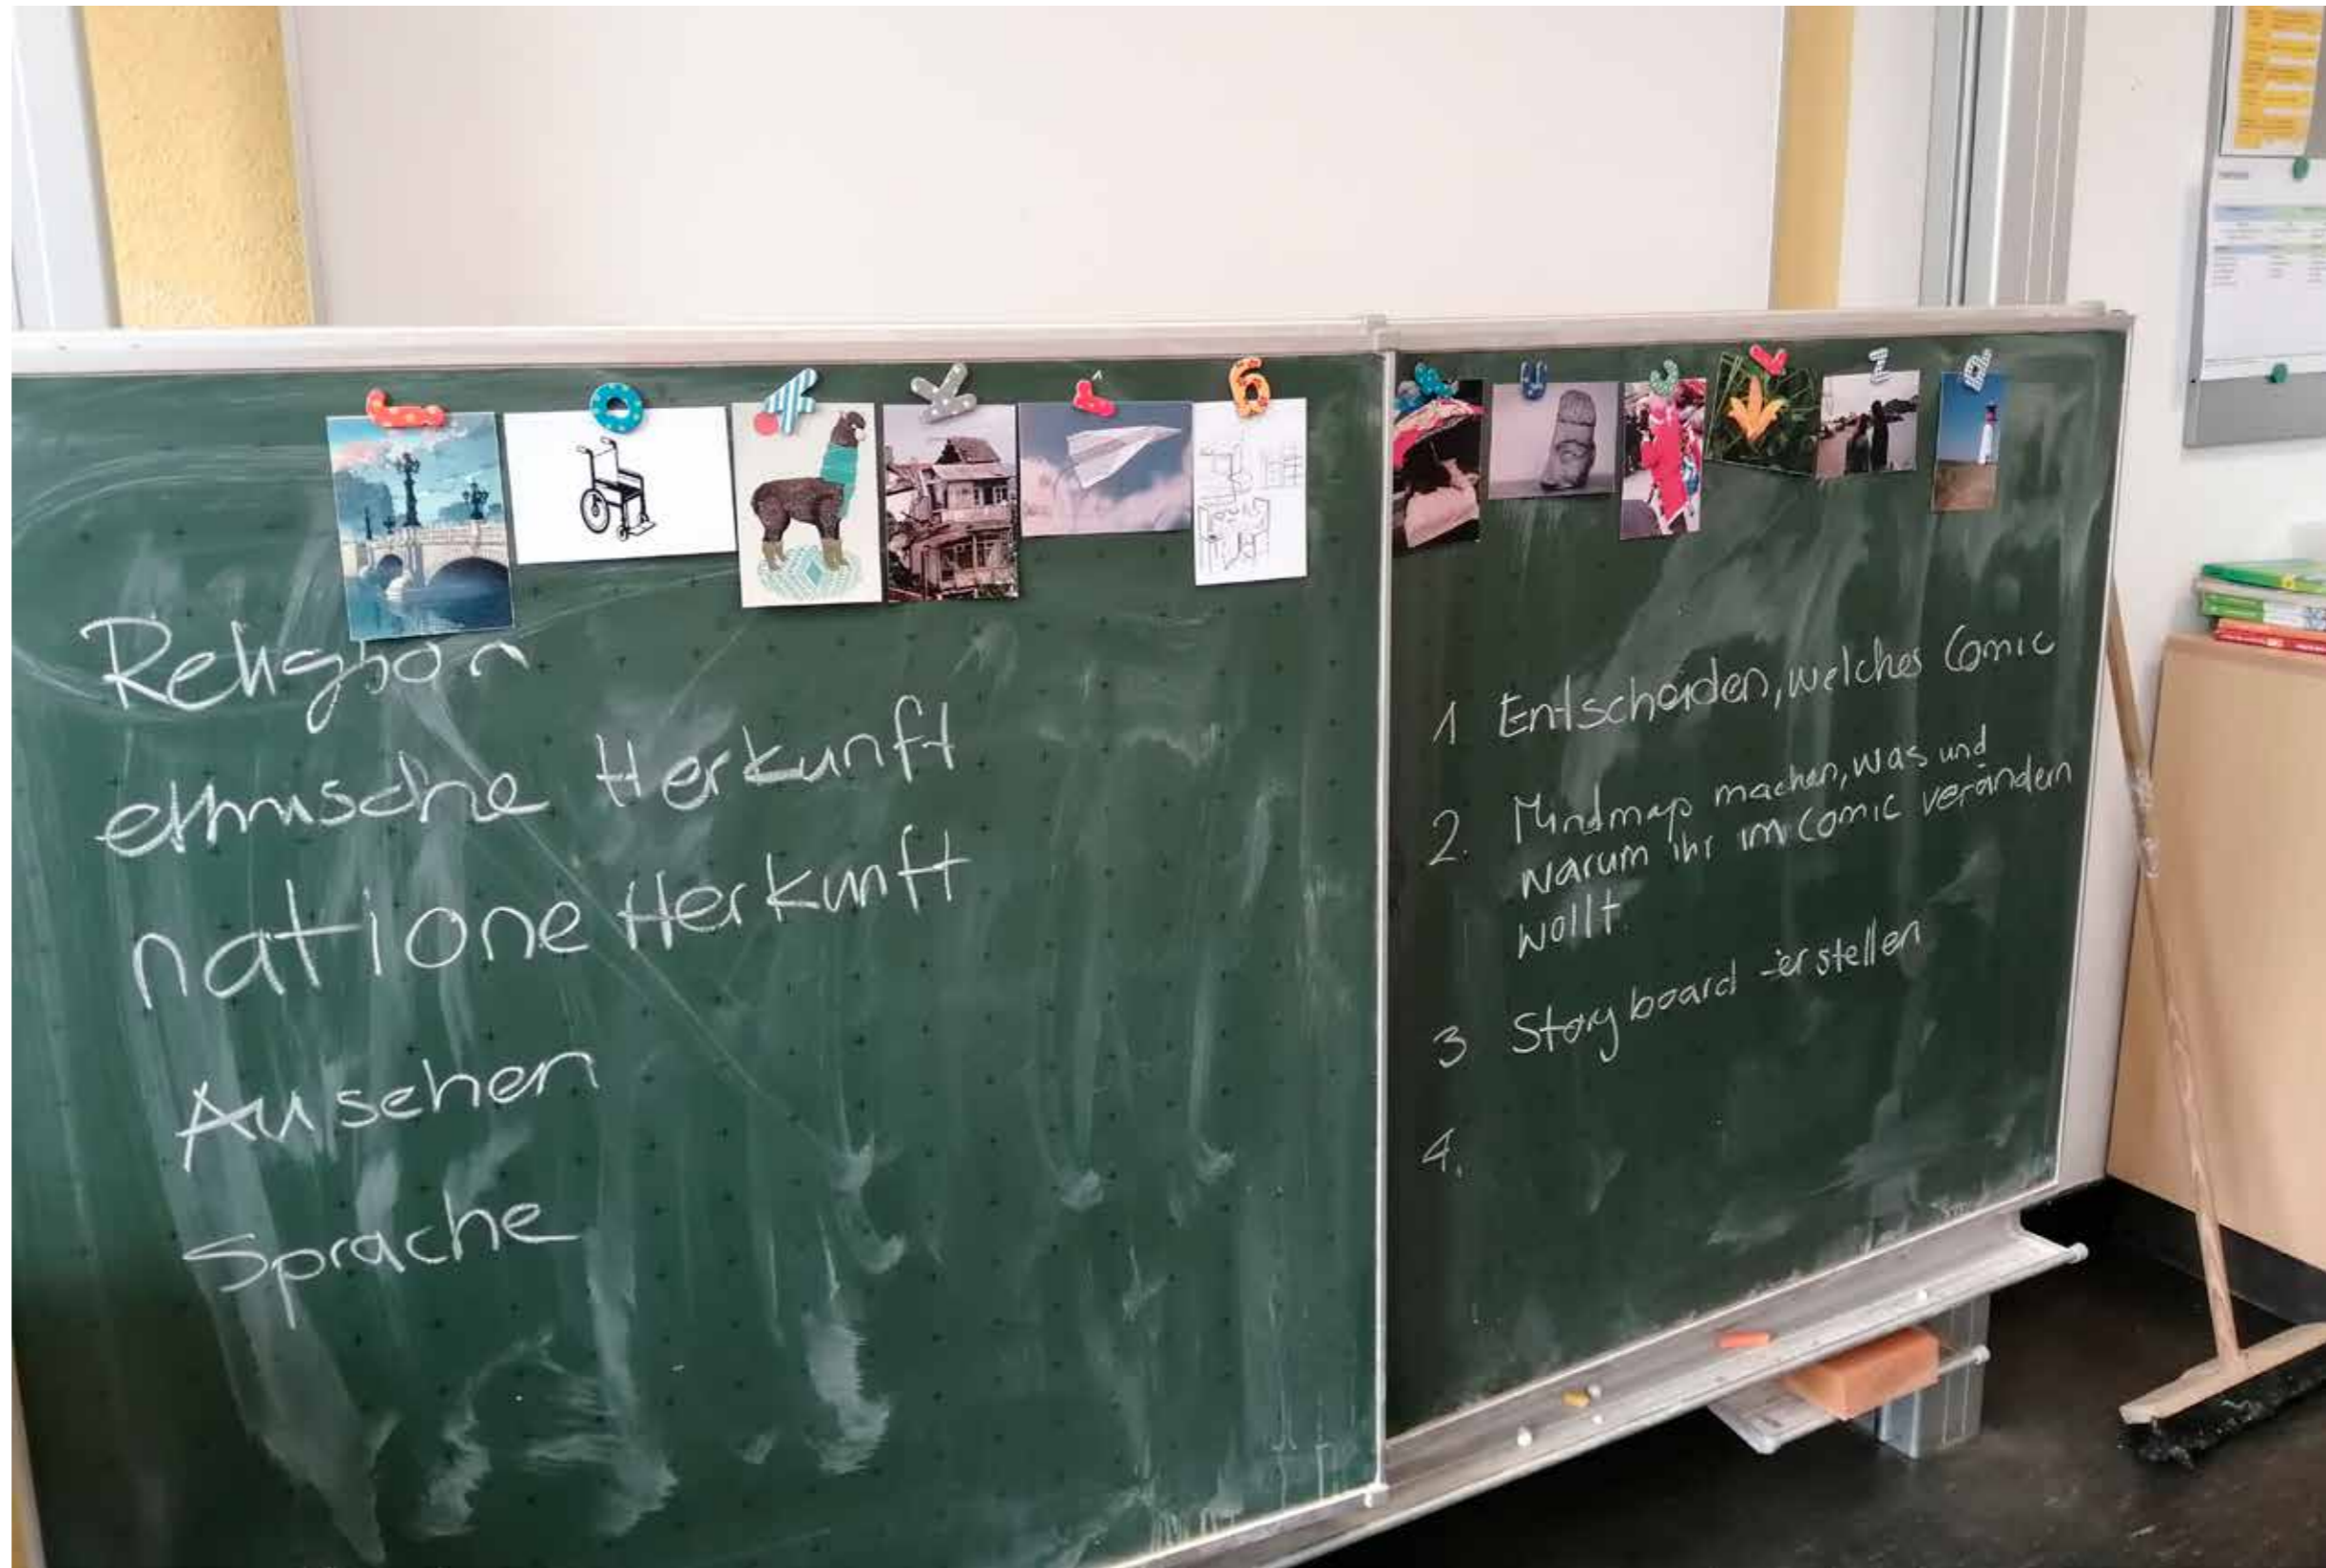 Religion
ethnische Herkunft
natione Herkunft
Aussehen
Sprache
1 Entscheiden, welches Comic
2. Mindmap machen, was und
warum ihr im Comic verändern
wollt.
3 Storyboard erstellen
4.